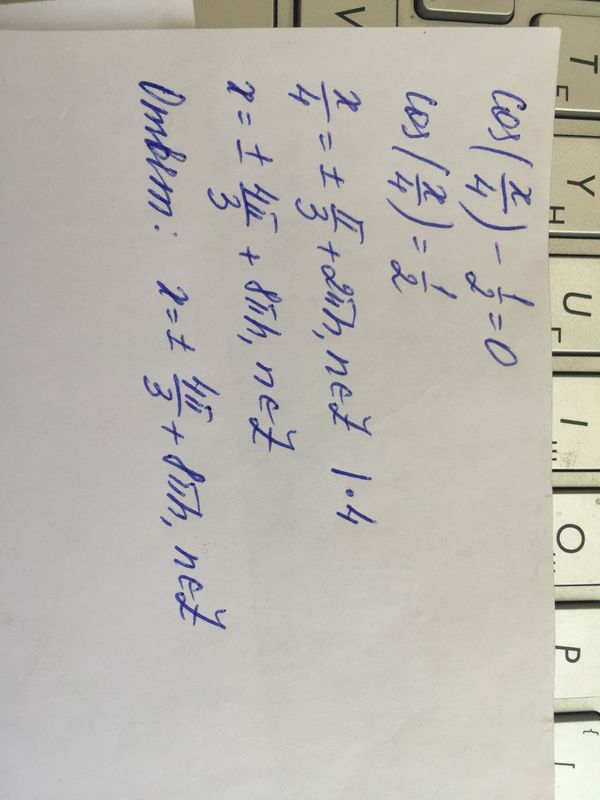 cos(x/4) - 1/2 = 0
cos(x/4) = 1/2
x/4 = ± π/3 + 2πn, n∈Z | ·4
x = ± 4π/3 + 8πn, n∈Z
Ответ: x = ± 4π/3 + 8πn, n∈Z
V
T Е
Y Н
U Г
I Ш
O
P
{ [